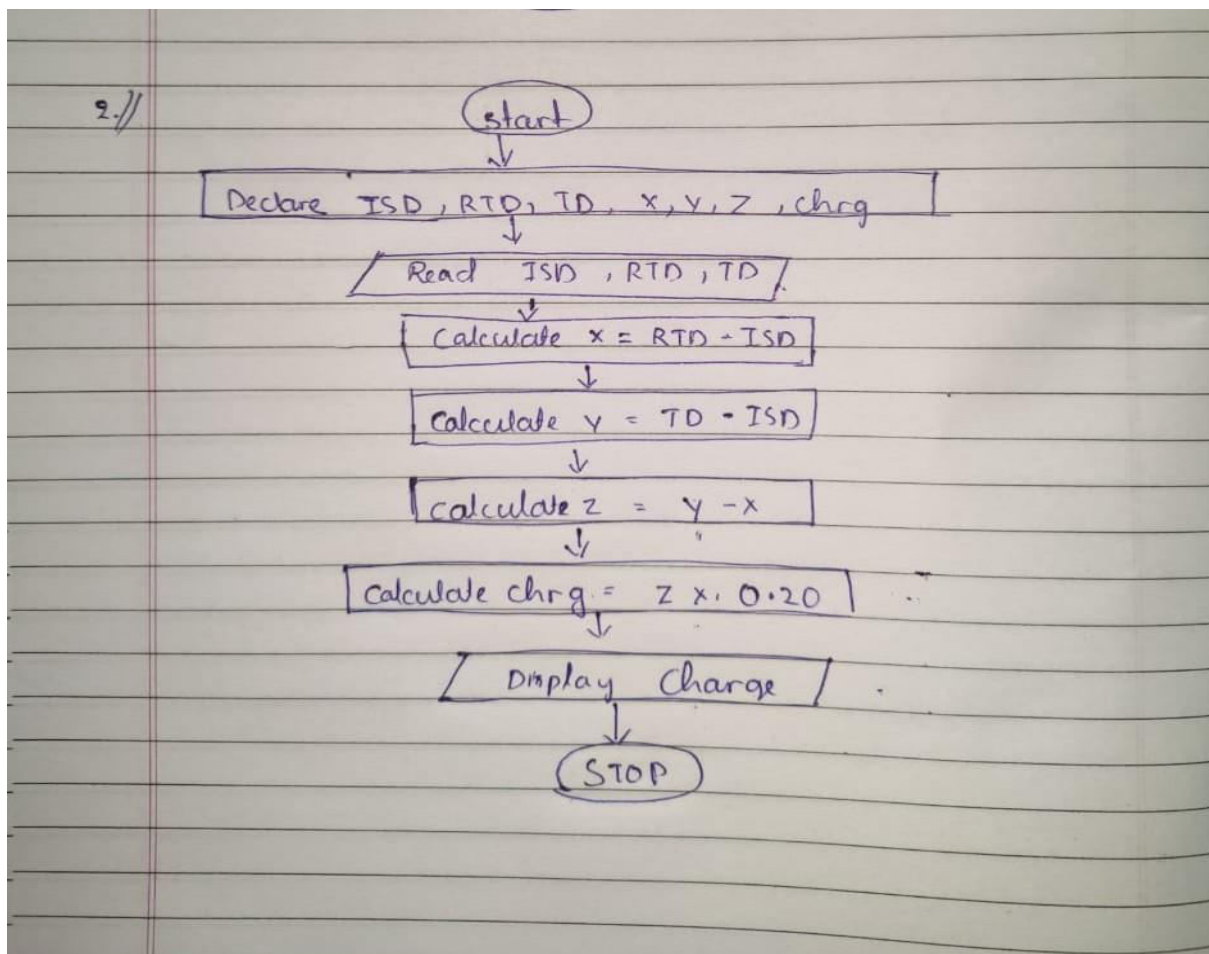 2.//
start
Declare ISD, RTD, TD, X, Y, Z, chrg
Read ISD, RTD, TD
Calculate x = RTD - ISD
Calculate y = TD - ISD
calculate z = y - x
calculate chrg = z x 0.20
Display Charge
STOP